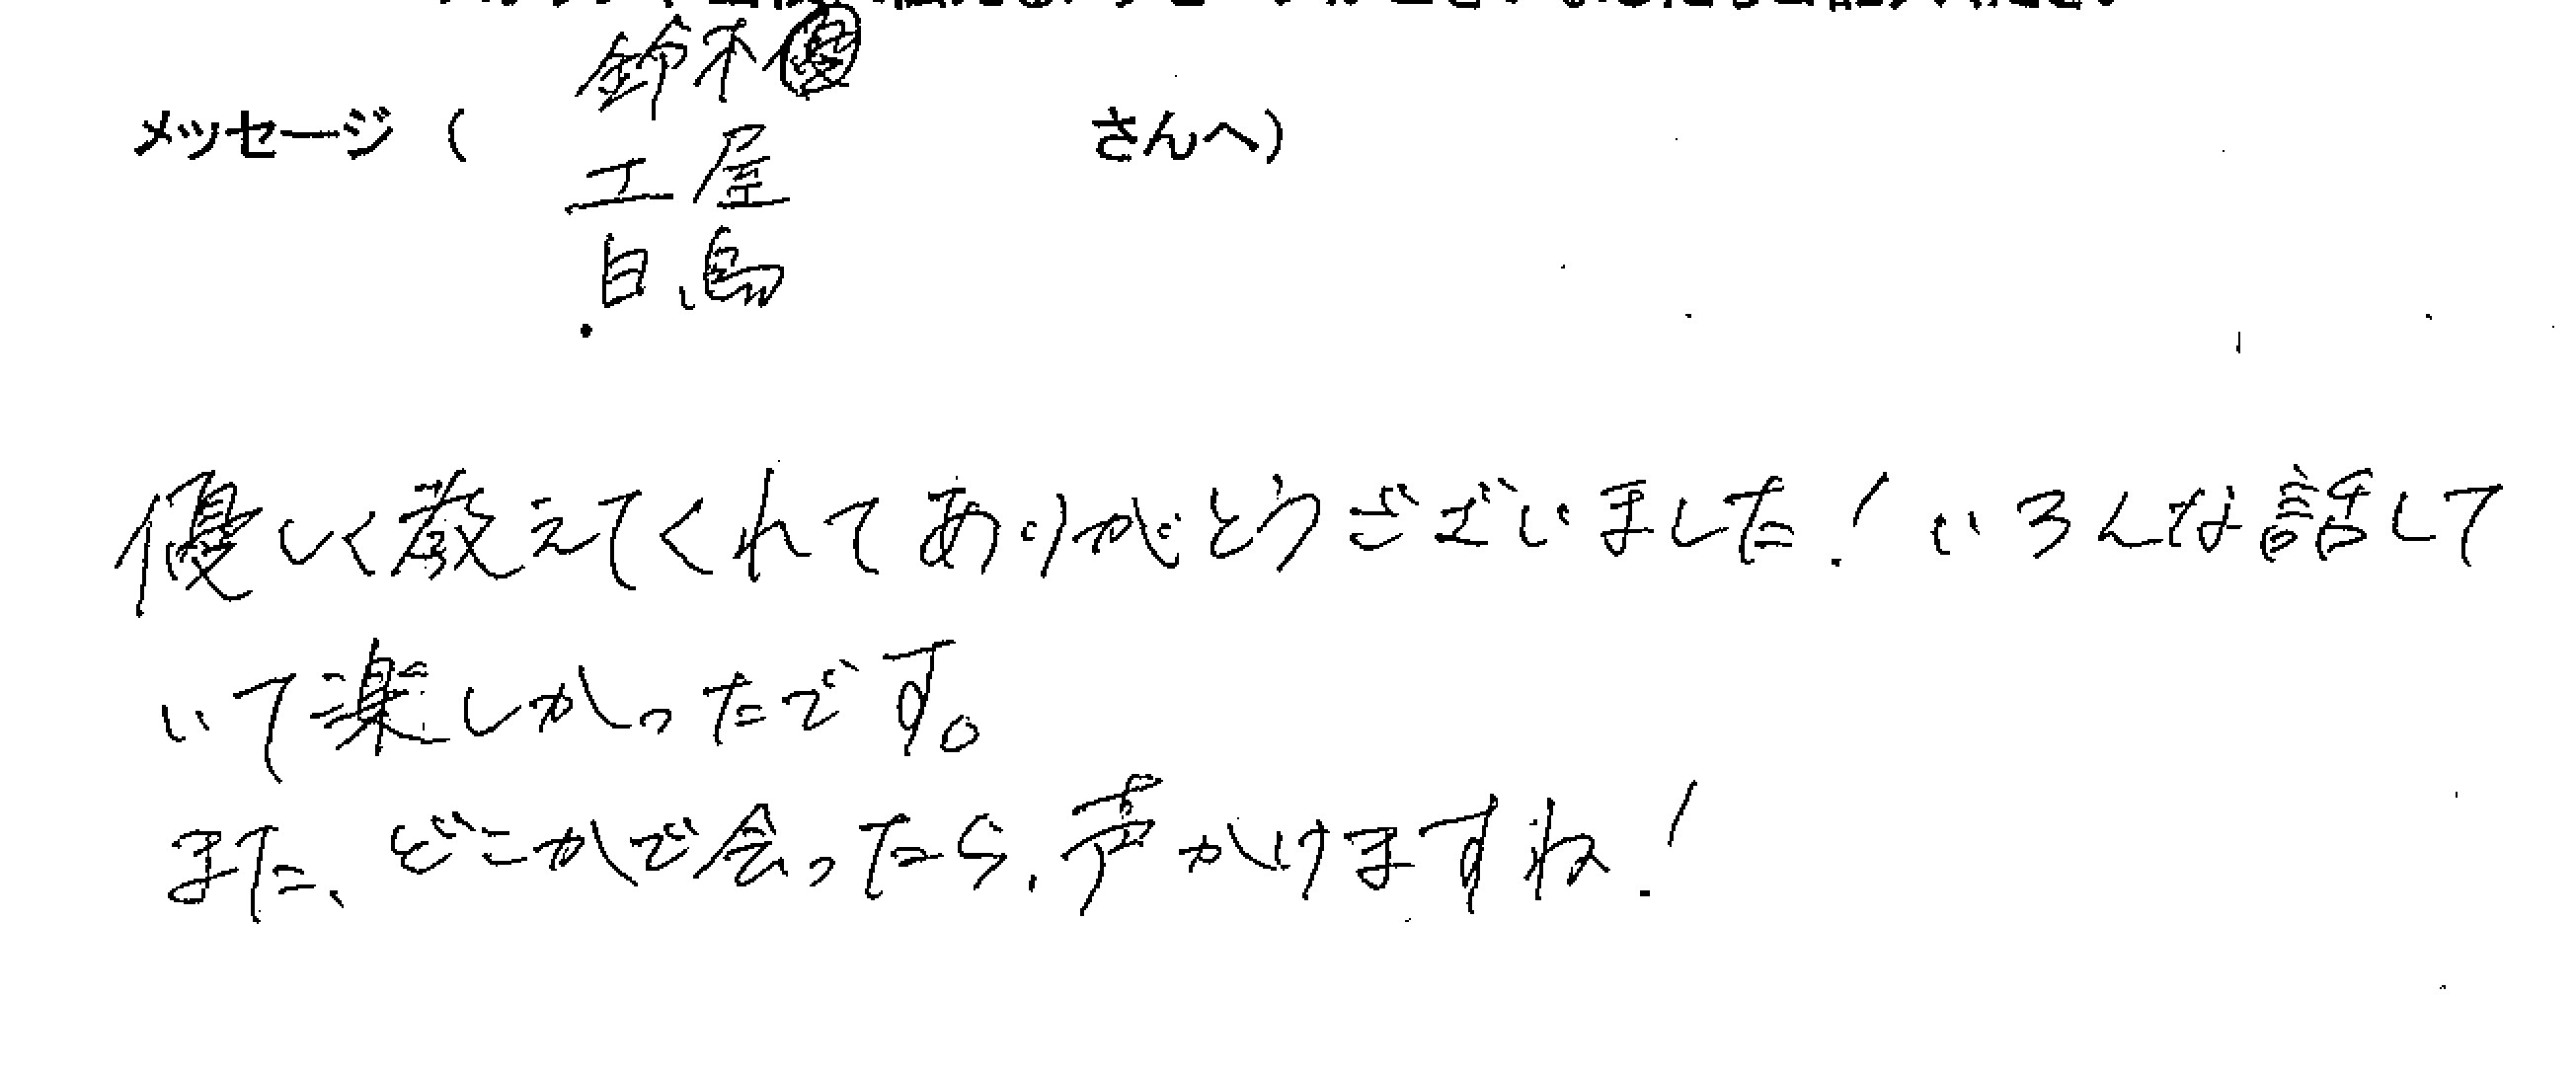 鈴木優
メッセージ（ 土屋 さんへ）
白鳥
優しく教えてくれてありがとうございました！いろんな話して
いて楽しかったです。
また、どこかで会ったら、声かけますね！